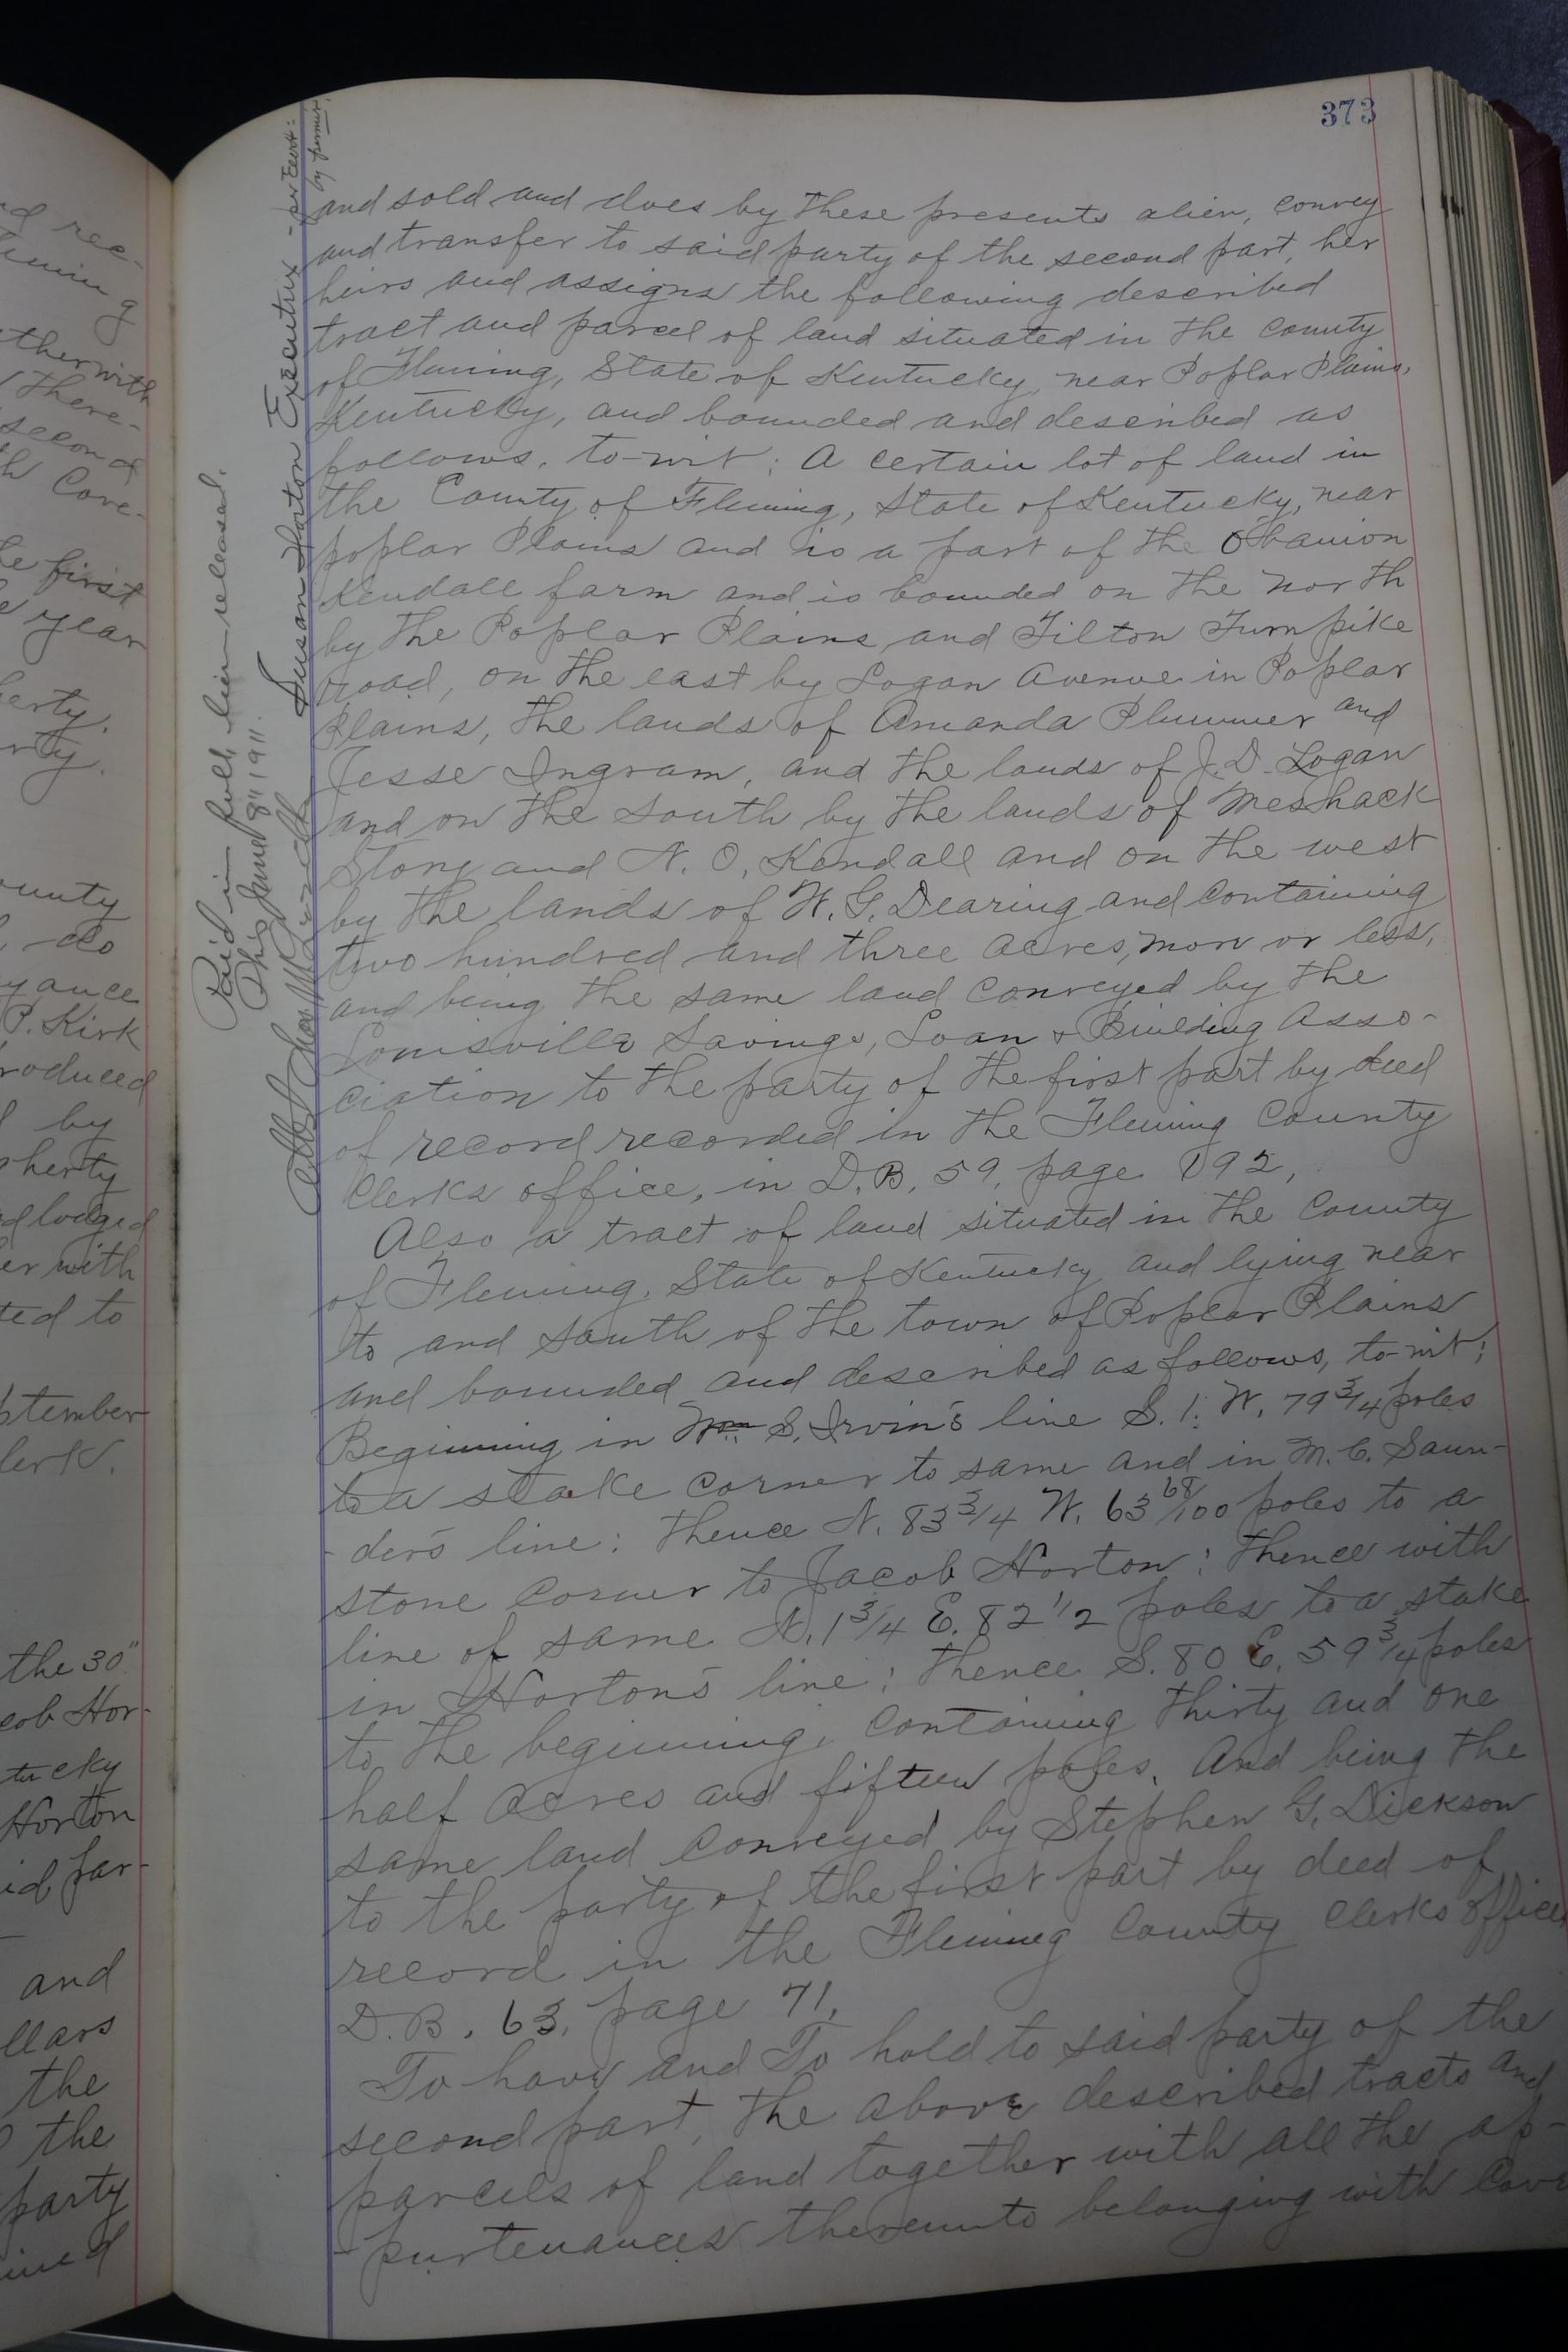 373
and sold and does by these presents alien, convey
and transfer to said party of the second part, her
heirs and assigns the following described
tract and parcel of land situated in the county
of Fleming, State of Kentucky, near Poplar Plains,
Kentucky, and bounded and described as
follows, to-wit: A certain lot of land in
the County of Fleming, State of Kentucky, near
poplar Plains and is a part of the Obanion
Kendall farm and is bounded on the north
by the Poplar Plains and Tilton Turnpike
road, on the east by Logan Avenue in Poplar
Plains, the lands of Amanda Plummer and
Jesse Ingram, and the lands of J. D. Logan
and on the South by the lands of Meshack
Story and N. O. Kendall and on the west
by the lands of W. G. Dearing and containing
two hundred and three acres, more or less,
and being the same land conveyed by the
Louisville Savings, Loan & Building Asso-
ciation to the party of the first part by deed
of record recorded in the Fleming County
Clerks office, in D. B. 59, page 192,
Also a tract of land situated in the County
of Fleming, State of Kentucky and lying near
to and South of the town of Poplar Plains
and bounded and described as follows, to-wit;
Beginning in Wm. S. Irvin's line S. 1. W. 79 3/4 poles
to a stake corner to same and in M. C. Saun-
-ders line: thence N. 83 3/4 W. 63 68/100 poles to a
stone corner to Jacob Horton: thence with
line of same N. 1 3/4 E. 82 1/2 poles to a stake
in Horton's line: thence S. 80 E. 59 3/4 poles
to the beginning, Containing thirty and one
half acres and fifteen poles. And being the
same land conveyed by Stephen G. Dickson
to the party of the first part by deed of
record in the Fleming County Clerks office
D. B. 63, page 71,
To have and To hold to said party of the
second part, the above described tracts and
parcels of land together with all the ap-
-purtenances thereunto belonging with Cov
Paid in full lien released.
This June 8" 1911.
Susan Horton Executrix
by former
ther with
There-
second
Cove-
first
year
erty.
rty.
ounty
do
yance
P. Kirk
roduced
by
herty
d lodged
er with
ted to
ptember
lerk.
the 30"
cob Hor-
tucky
Horton
id par-
and
llars
the
the
party